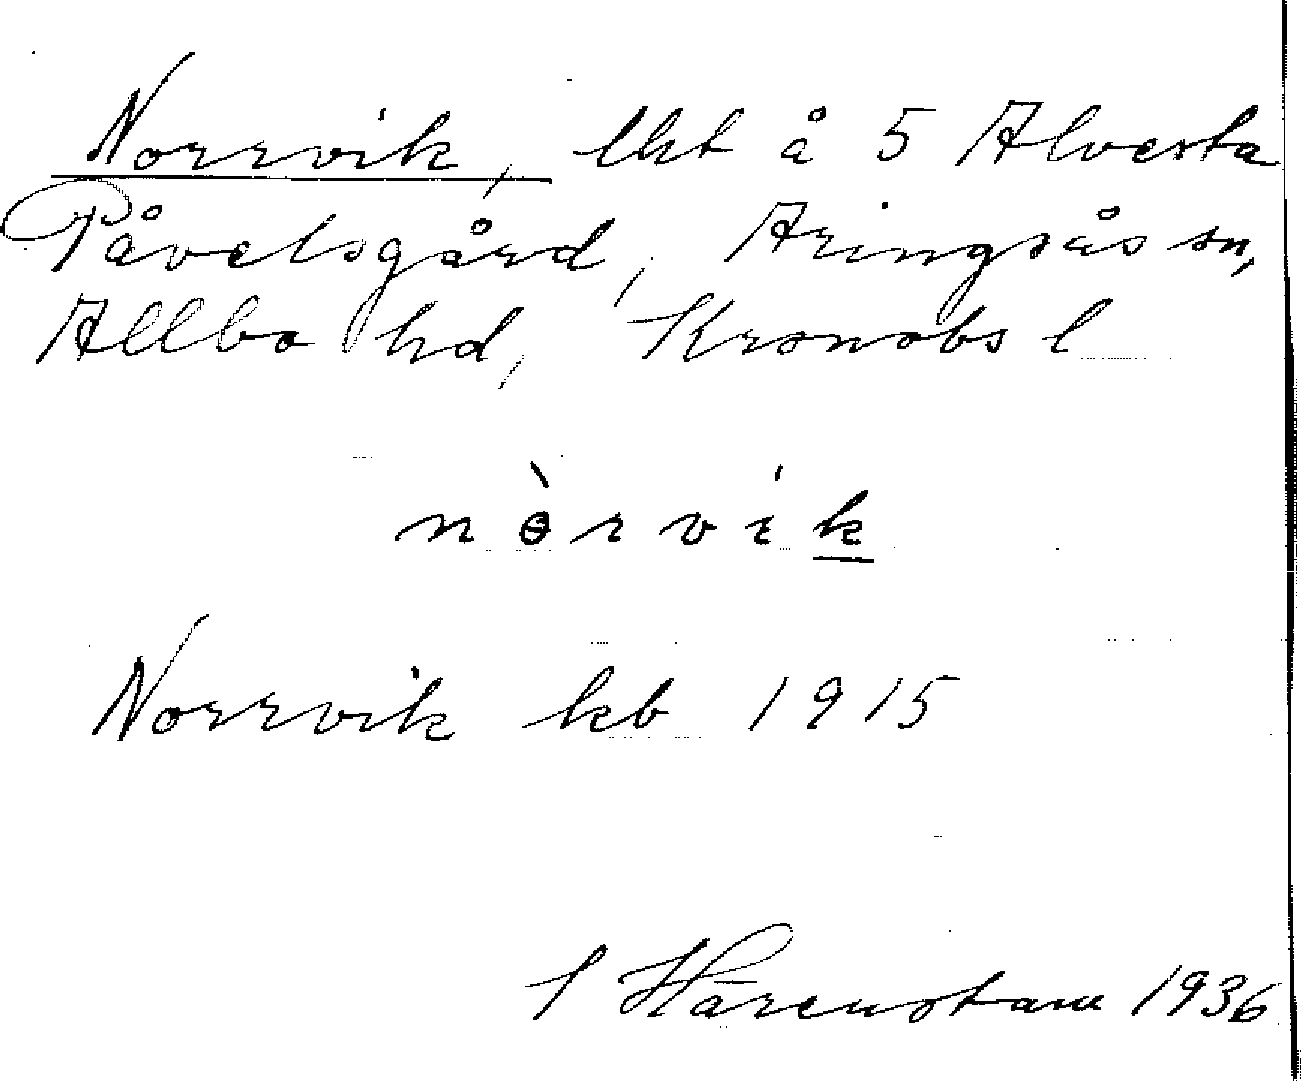 Norrvik, lht å 5 Alvesta
Påvelsgård, Aringsås sn,
Allbo hd, Kronobs l
nɵ̀rvik
Norrvik kb 1915
S Härenstam 1936